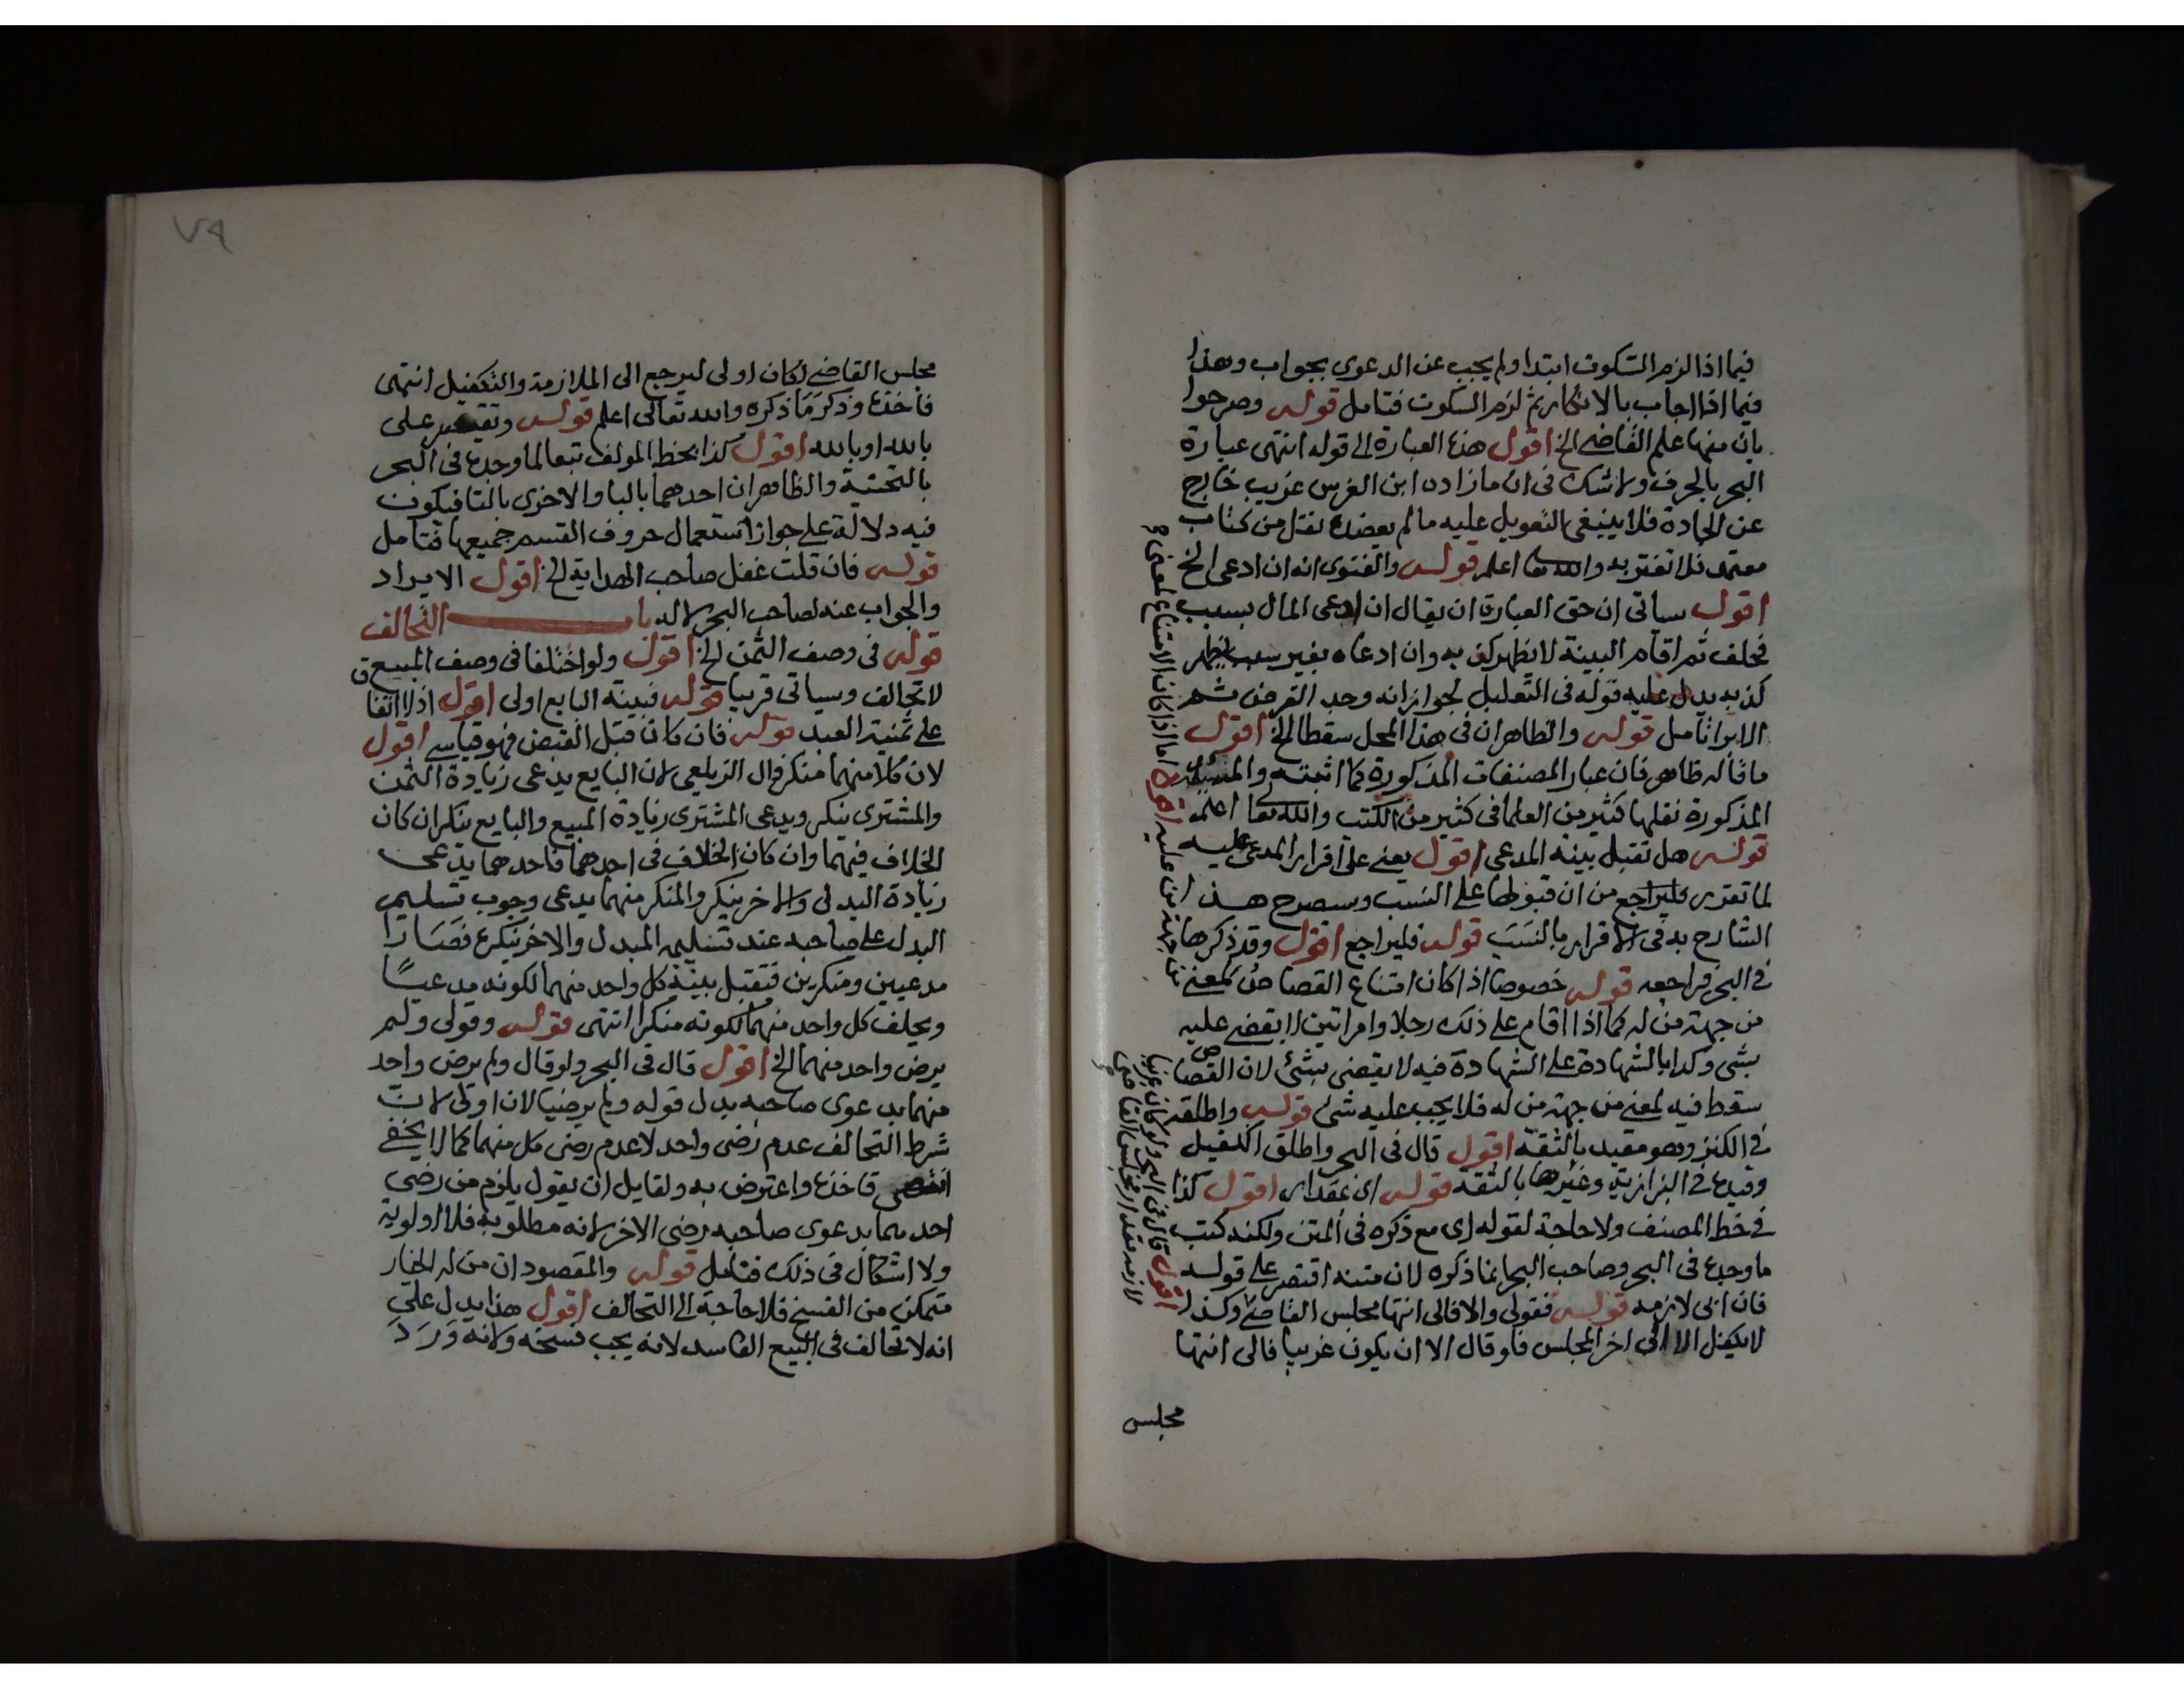 فيما اذا لزم السكوت ابتدا ولم يجب عن الدعوى بجواب وهذا
فيما اذا اجاب بالانكار ثم لزم السكوت فتامل قوله وصرحوا
بان منها علم القاضي الخ اقول هذه العبارة الى قوله انتهى عبارة
البحر بالحرف ولا شك في ان ما زاده ابن الغرس غريب خارج
عن الجادة فلا ينبغي التعويل عليه ما لم يعضده نقل من كتاب
معتمد فلا تغتر به والله تعا اعلم قوله والفتوى انه ان ادعى الخ
اقول سياتي ان حق العبارة ان يقال ان ادعى المال بسبب
فحلف ثم اقام البينة لا يظهر كذبه وان ادعاه بغير سبب يظهر
كذبه يدل عليه قوله في التعليل لجواز انه وجد القرض ثم
الابرا تامل قوله والظاهر ان في هذا المحل سقطا الخ اقول
ما قاله ظاهر فان عبار المصنفات المذكورة كما اثبته والمسئلة
المذكورة نقلها كثير من العلما في كثير من الكتب والله تعالى اعلم
قوله هل تقبل بينة المدعي اقول يعني على اقرار المدعى عليه
لما تقرر فليراجع من ان قبولها على النسب وسيصرح هذا
الشارح به في الاقرار بالنسب قوله فليراجع اقول وقد ذكرها
في البحر فراجعه قوله خصوصا اذا كان امتناع القصاص لمعنى
من جهة من له كما اذا اقام على ذلك رجلا وامراتين لا يقضى عليه
بشي وكذا بالشهادة على الشهادة فيه لا يقضى بشئ لان القصاص
سقط فيه لمعنى من جهة من له فلا يجب عليه شئ قوله واطلقه
في الكنز وهو مقيد بالثقة اقول قال في البحر واطلق الكفيل
وقيده في البزازية وغيرها بالثقة قوله اى عقدار اقول كذا
في خط المصنف ولا حاجة لقوله اى مع ذكره في المتن ولكنه كتب
ما وجده في البحر وصاحب البحر انما ذكره لان متنه اقتصر على قوله
فان ابى لازمه قوله فقولي والا فالى انتها مجلس القاضي وكذا
لا يكفل الا الى اخر المجلس فلو قال الا ان يكون غريبا فالى انتها
مجلس
اما اذا كان الامتناع لمعنى
من جهة من عليه
اقول قال في البحر ولو كان غريبا
لازمه مقدار مجلس القاضي
٧٩
مجلس القاضي لكان اولى ليرجع الى الملازمة والتكفيل انتهى
فاخذه وذكر ما ذكره والله تعالى اعلم قوله على
بالله او بالله اقول كذا بخط المولف تبعا لما وجده في البحر
بالتحتية والظاهر ان احدهما بالبا والاخرى بالتا فيكون
فيه دلالة على جواز استعمال حروف القسم جميعها فتامل
قوله فان قلت غفل صاحب الهداية الخ اقول الايراد
والجواب عنه لصاحب البحر لا له باب التحالف
قوله في وصف الثمن الخ اقول ولو اختلفا في وصف المبيع
لا تحالف وسياتي قريبا قوله فبينة البايع اولى اقول اذ لا اتفا
على ثمنية العبد قوله فان كان قبل القبض فهو قياسي اقول
لان كلا منهما منكر قال الزيلعي لان البايع يدعي زيادة الثمن
والمشتري ينكر ويدعي المشتري زيادة المبيع والبايع ينكر ان كان
الخلاف فيهما وان كان الخلاف في احدهما فاحدهما يدعى
زيادة البدل والاخر ينكر والمنكر منهما يدعى وجوب تسليم
البدل على صاحبه عند تسليم المبدل والاخر ينكره فصارا
مدعيين ومنكرين فتقبل بينة كل واحد منهما لكونه مدعيا
ويحلف كل واحد منهما لكونه منكرا انتهى قوله وقولي ولم
يرض واحد منهما الخ اقول قال في البحر ولو قال ولم يرض واحد
منهما بدعوى صاحبه بدل قوله ولم يرضيا لان اولى لان
شرط التحالف عدم رضى واحد لا عدم رضى كل منهما كما لا يخفى
انتهى فاخذه واعترض به ولقايل ان يقول يلزم من رضى
احدهما بدعوى صاحبه رضى الاخر لانه مطلوبه فلا اولوية
ولا اشكال في ذلك فتامل قوله والمقصود ان من له الخيار
متمكن من الفسخ فلا حاجة الى التحالف اقول هذا يدل على
انه لا تحالف في البيع الفاسد لانه يجب فسخه ولانه ورد